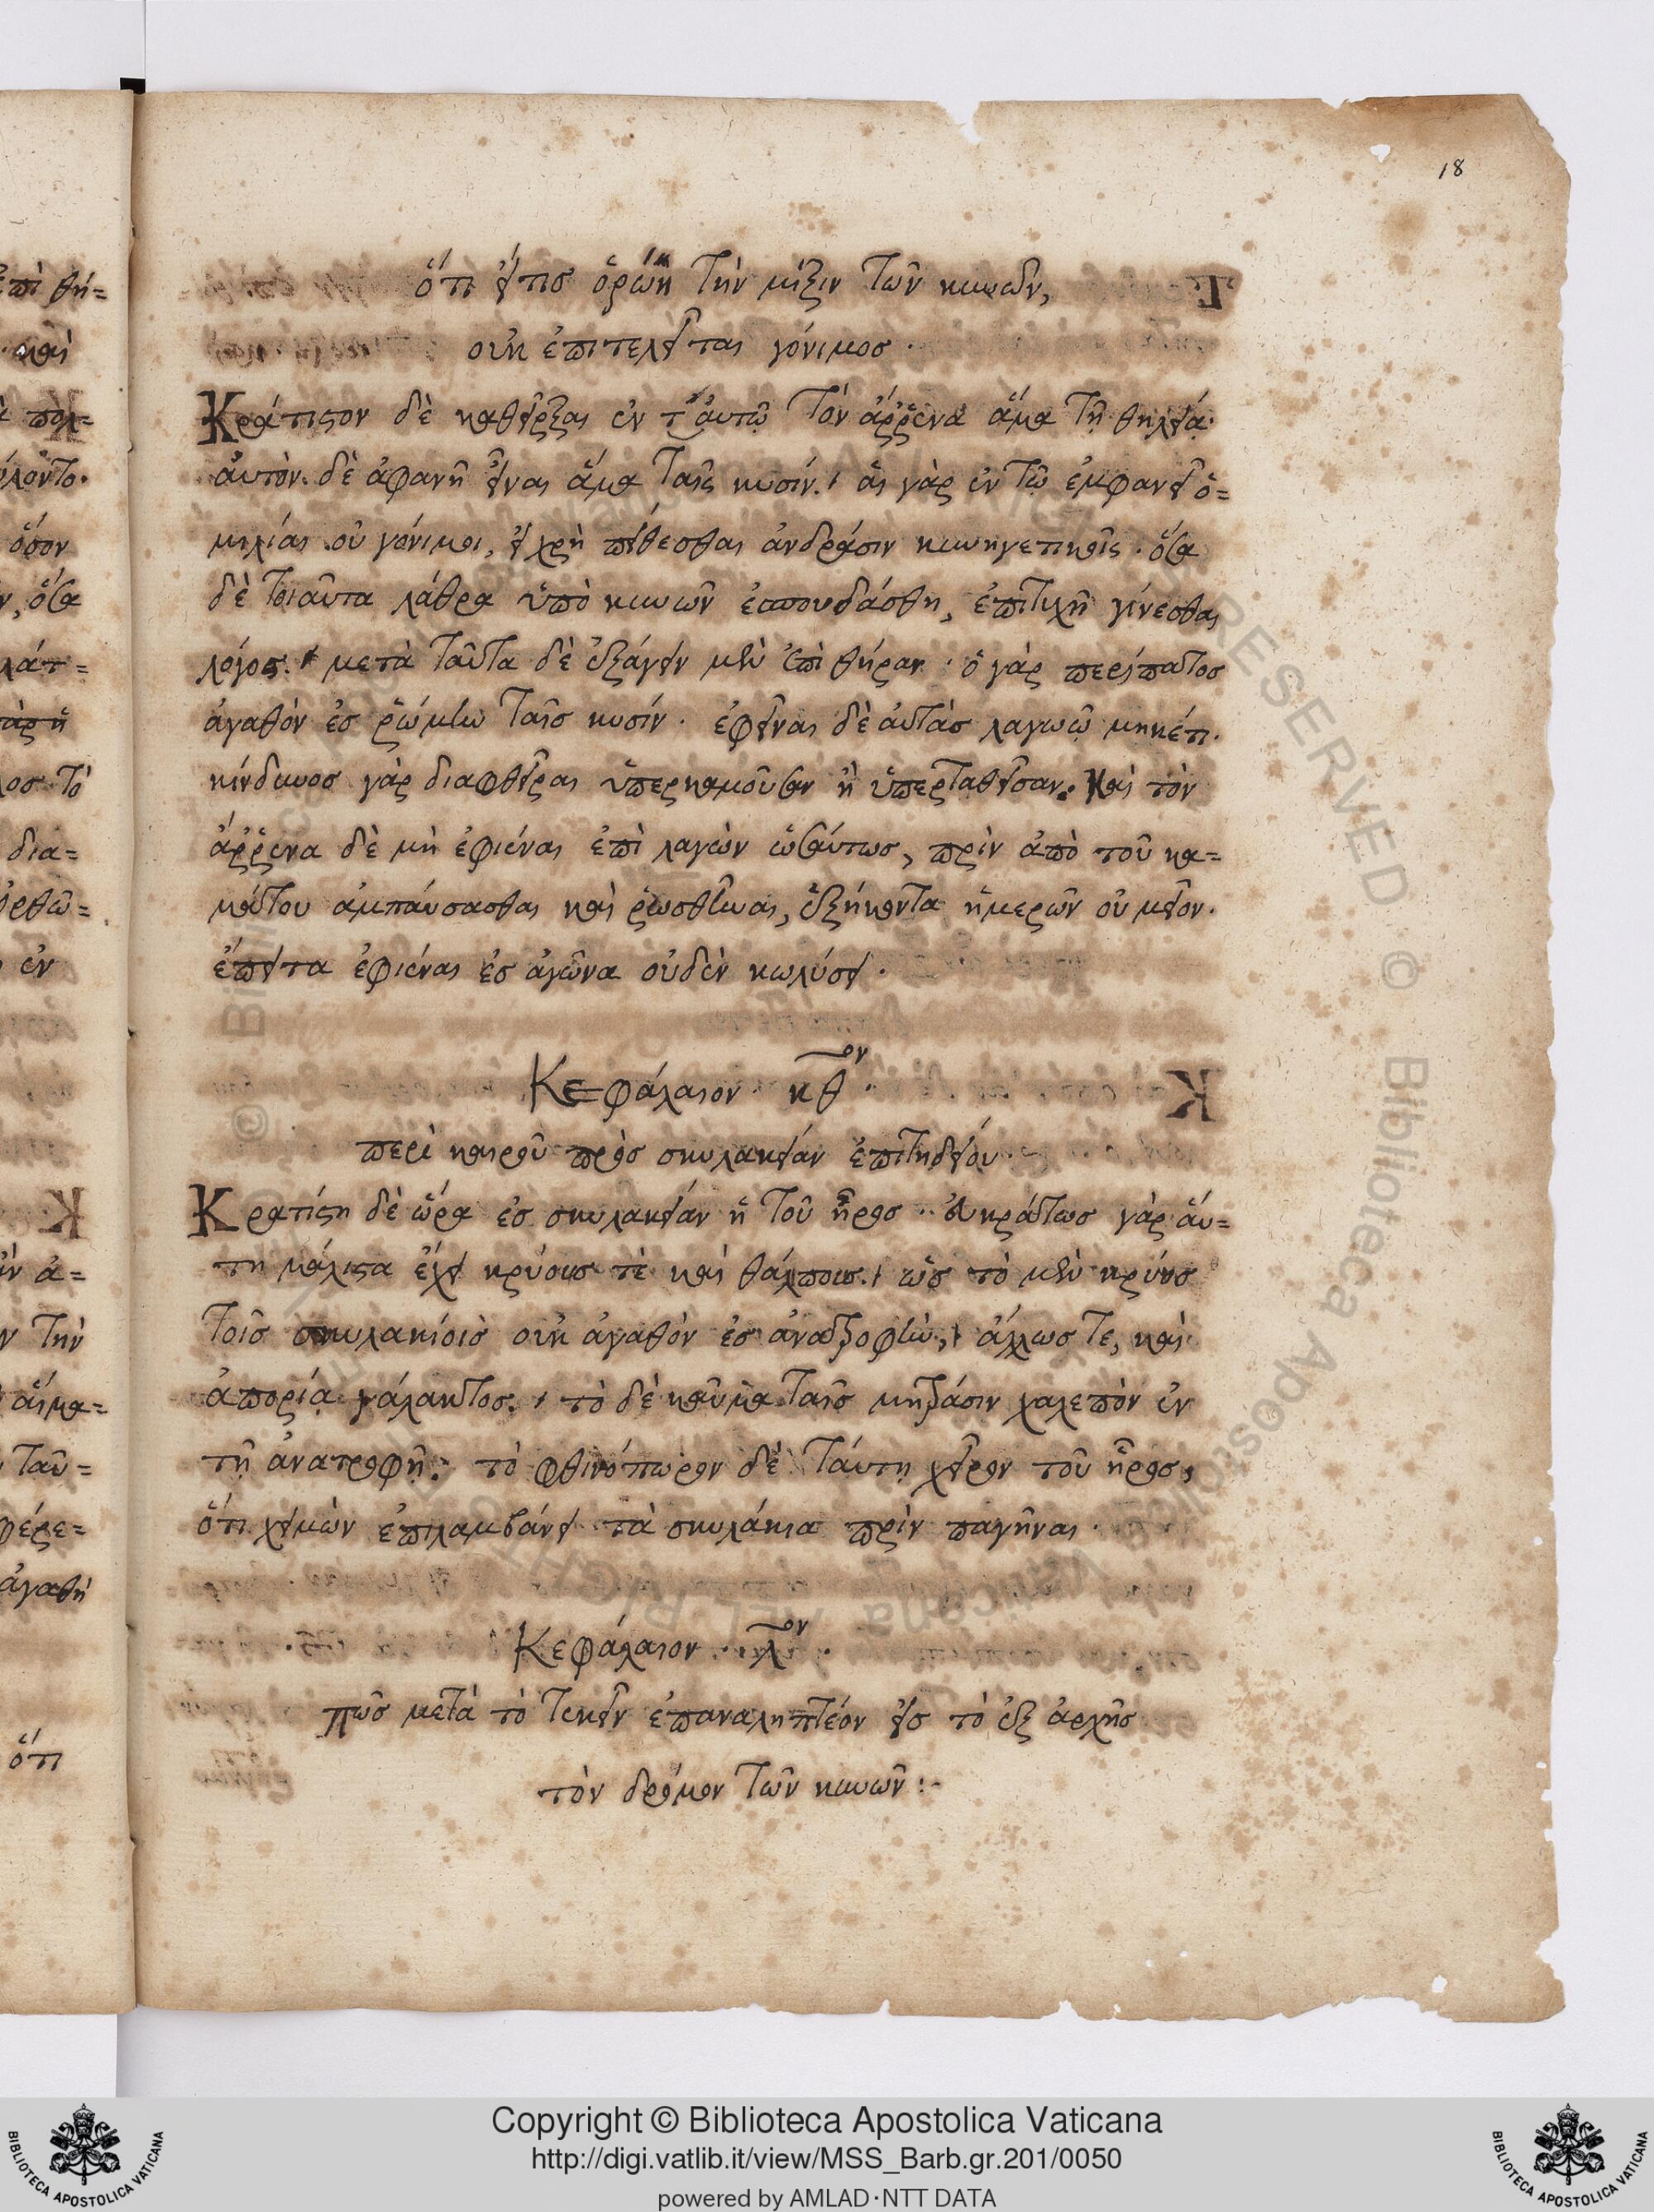 18
ὅτι εἴτις ὁρώη τὴν μίξιν τῶν κυνῶν,
οὐκ ἐπιτελεῖται γόνιμος.
Κράτιστον δὲ καθεῖρξαι ἐν τ' αὐτῷ τὸν ἄῤῥενα ἅμα τῇ θηλείᾳ·
αὐτὸν δὲ ἀφανῆ εἶναι ἅμα ταῖς κυσίν. αἱ γὰρ ἐν τῷ ἐμφανεῖ ὁ=
μιλίαι οὐ γόνιμοι, εἰ χρὴ πείθεσθαι ἀνδράσιν κυνηγετικοῖς. ὅσα
δὲ τοιαῦτα λάθρα ὑπὸ κυνῶν ἐσπουδάσθη, ἐπιτυχῆ γίνεσθαι
λόγος. μετὰ ταῦτα δὲ ἐξάγειν μὲν ἐπὶ θήραν· ὁ γὰρ περίπατος
ἀγαθὸν ἐς ῥώμην ταῖς κυσίν. ἐφεῖναι δὲ αὐτὰς λαγωῷ μηκέτι.
κίνδυνος γὰρ διαφθεῖραι ὑπερκαμοῦσαν ἢ ὑπερταθεῖσαν. Καὶ τὸν
ἄῤῥενα δὲ μὴ ἐφιέναι ἐπὶ λαγὼν ὡσαύτως, πρὶν ἀπὸ τοῦ κα=
μάτου ἀμπαύσασθαι καὶ ῥωσθῆναι, ἑξήκοντα ἡμερῶν οὐ μεῖον.
ἔπειτα ἐφιέναι ἐς ἀγῶνα οὐδὲν κωλύσει.
Κεφάλαιον κθον.
περὶ καιροῦ πρὸς σκυλακείαν ἐπιτηδείου.
Κρατίστη δὲ ὥρα ἐς σκυλακείαν ἡ τοῦ ἦρος. εὐκράτως γὰρ αὕ=
τη μάλιστα ἔχει κρύους τὲ καὶ θάλπους. ὡς τὸ μὲν κρύος
τοῖς σκυλακίοις οὐκ ἀγαθὸν ἐς ἀνατροφὴν, ἄλλως τε, καὶ
ἀπορίᾳ γάλακτος. τὸ δὲ καῦμα ταῖς μητράσιν χαλεπὸν ἐν
τῇ ἀνατροφῇ. τὸ φθινόπωρον δὲ ταύτῃ χεῖρον τοῦ ἦρος,
ὅτι χειμὼν ἐπιλαμβάνει τὰ σκυλάκια πρὶν παγῆναι.
Κεφάλαιον λον.
πῶς μετὰ τὸ τεκεῖν ἐπαναληπτέον εἰς τὸ ἐξ ἀρχῆς
τὸν δρόμον τῶν κυνῶν:-
Copyright © Biblioteca Apostolica Vaticana
http://digi.vatlib.it/view/MSS_Barb.gr.201/0050
powered by AMLAD·NTT DATA